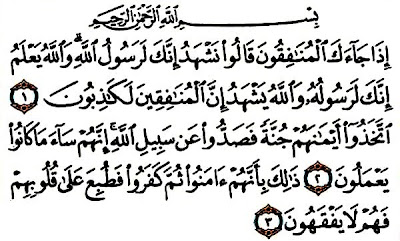 بِسْمِ اللَّهِ الرَّحْمَٰنِ الرَّحِيمِ
إِذَا جَآءَكَ ٱلْمُنَٰفِقُونَ قَالُوا۟ نَشْهَدُ إِنَّكَ لَرَسُولُ ٱللَّهِ ۗ وَٱللَّهُ يَعْلَمُ
إِنَّكَ لَرَسُولُهُۥ وَٱللَّهُ يَشْهَدُ إِنَّ ٱلْمُنَٰفِقِينَ لَكَٰذِبُونَ ١
ٱتَّخَذُوٓا۟ أَيْمَٰنَهُمْ جُنَّةً فَصَدُّوا۟ عَن سَبِيلِ ٱللَّهِ ۚ إِنَّهُمْ سَآءَ مَا كَانُوا۟
يَعْمَلُونَ ٢ ذَٰلِكَ بِأَنَّهُمْ ءَامَنُوا۟ ثُمَّ كَفَرُوا۟ فَطُبِعَ عَلَىٰ قُلُوبِهِمْ
فَهُمْ لَا يَفْقَهُونَ ٣